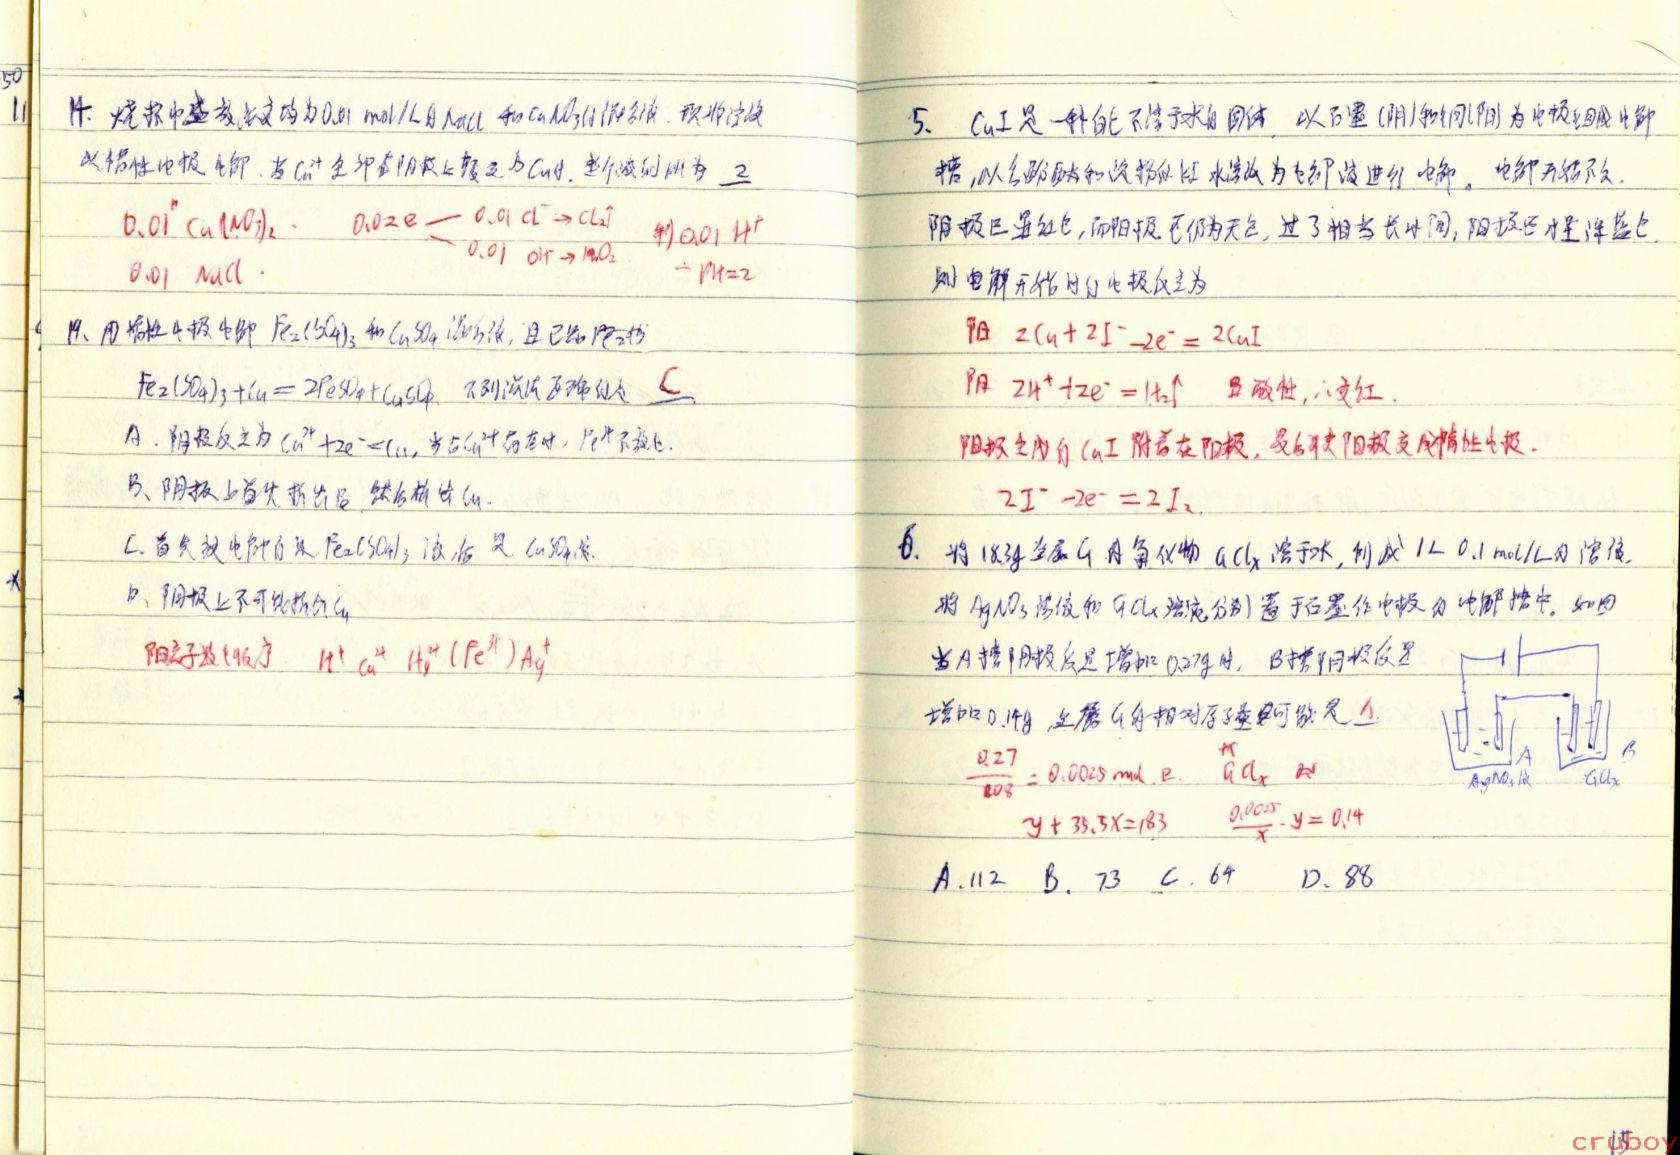 50
11
14. 烧杯中盛放浓度均为0.01 mol/L的NaCl和Cu(NO3)2的混合液. 现将溶液
以惰性电极电解. 当Cu2+全部在阴极上转变为Cu时. 整个液的pH为 2
0.01 Cu(NO3)2. 0.02e 0.01 Cl- → Cl2↑ 剩0.01 H+
0.01 NaCl. 0.01 OH → H2O2 ∴ PH=2
19. 用惰性电极电解 Fe2(SO4)3和CuSO4混合液, 且已知
Fe2(SO4)3+Cu=2FeSO4+CuSO4. 下列说法正确的是 C
A. 阴极反应为 Cu2++2e-=Cu, 当有Cu2+存在时, Fe3+不放电.
B、阴极上首先析出Fe, 然后析出Cu.
C. 首先被电解的是Fe2(SO4)3液, 后是CuSO4液.
D、阴极上不可能析出Cu
阳离子放电顺序 H+ Cu2+ Hg2+ (Fe3+) Ag+
5. CuI是一种白色不溶于水的固体. 以石墨(阴)和铜(阳)为电极组成电解
槽, 以含酚酞和淀粉的KI水溶液为电解液进行电解. 电解开始不久.
阴极区显红色, 而阳极区仍为无色, 过了相当长时间, 阳极区才呈深蓝色.
则电解开始时的电极反应为
阳 2Cu+2I--2e-=2CuI
阴 2H++2e-=H2↑ 显酸性, ∴变红.
阳极生成的CuI附着在阳极, 最后使阳极变成惰性电极.
2I--2e-=2I2.
6. 将18.3g金属G的氯化物GClx溶于水, 制成1L 0.1mol/L的溶液.
将AgNO3溶液和GClx溶液分别置于石墨作电极的电解槽中. 如图
当A槽阴极质量增加0.27g时, B槽阴极质量
增加0.14g, 金属G的相对原子质量可能是 A.
0.27/108 = 0.0025 mol e. GClx
y+35.5x=183 0.0025/x·y=0.14
A AgNO3液 B GClx
A. 112 B. 73 C. 64 D. 88
15
cruboy